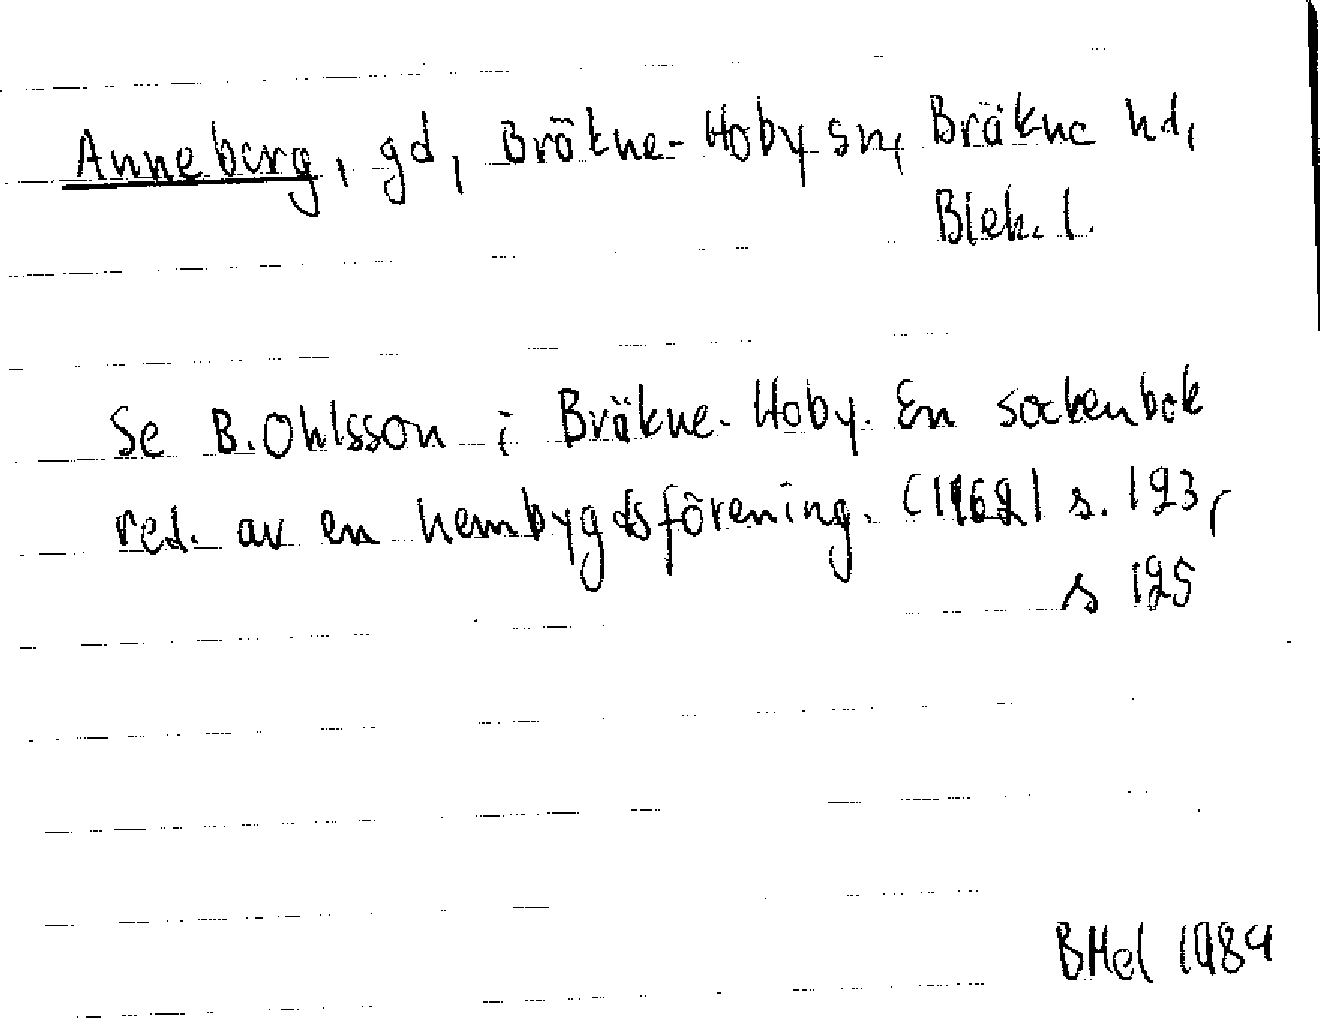 Anneberg, gd, Bräkne-Hoby sn, Bräkne hd,
Blek. l.
Se B. Ohlsson i Bräkne-Hoby. En sockenbok
red. av en hembygdsförening. (1962) s. 123,
s 125
BHel 1989